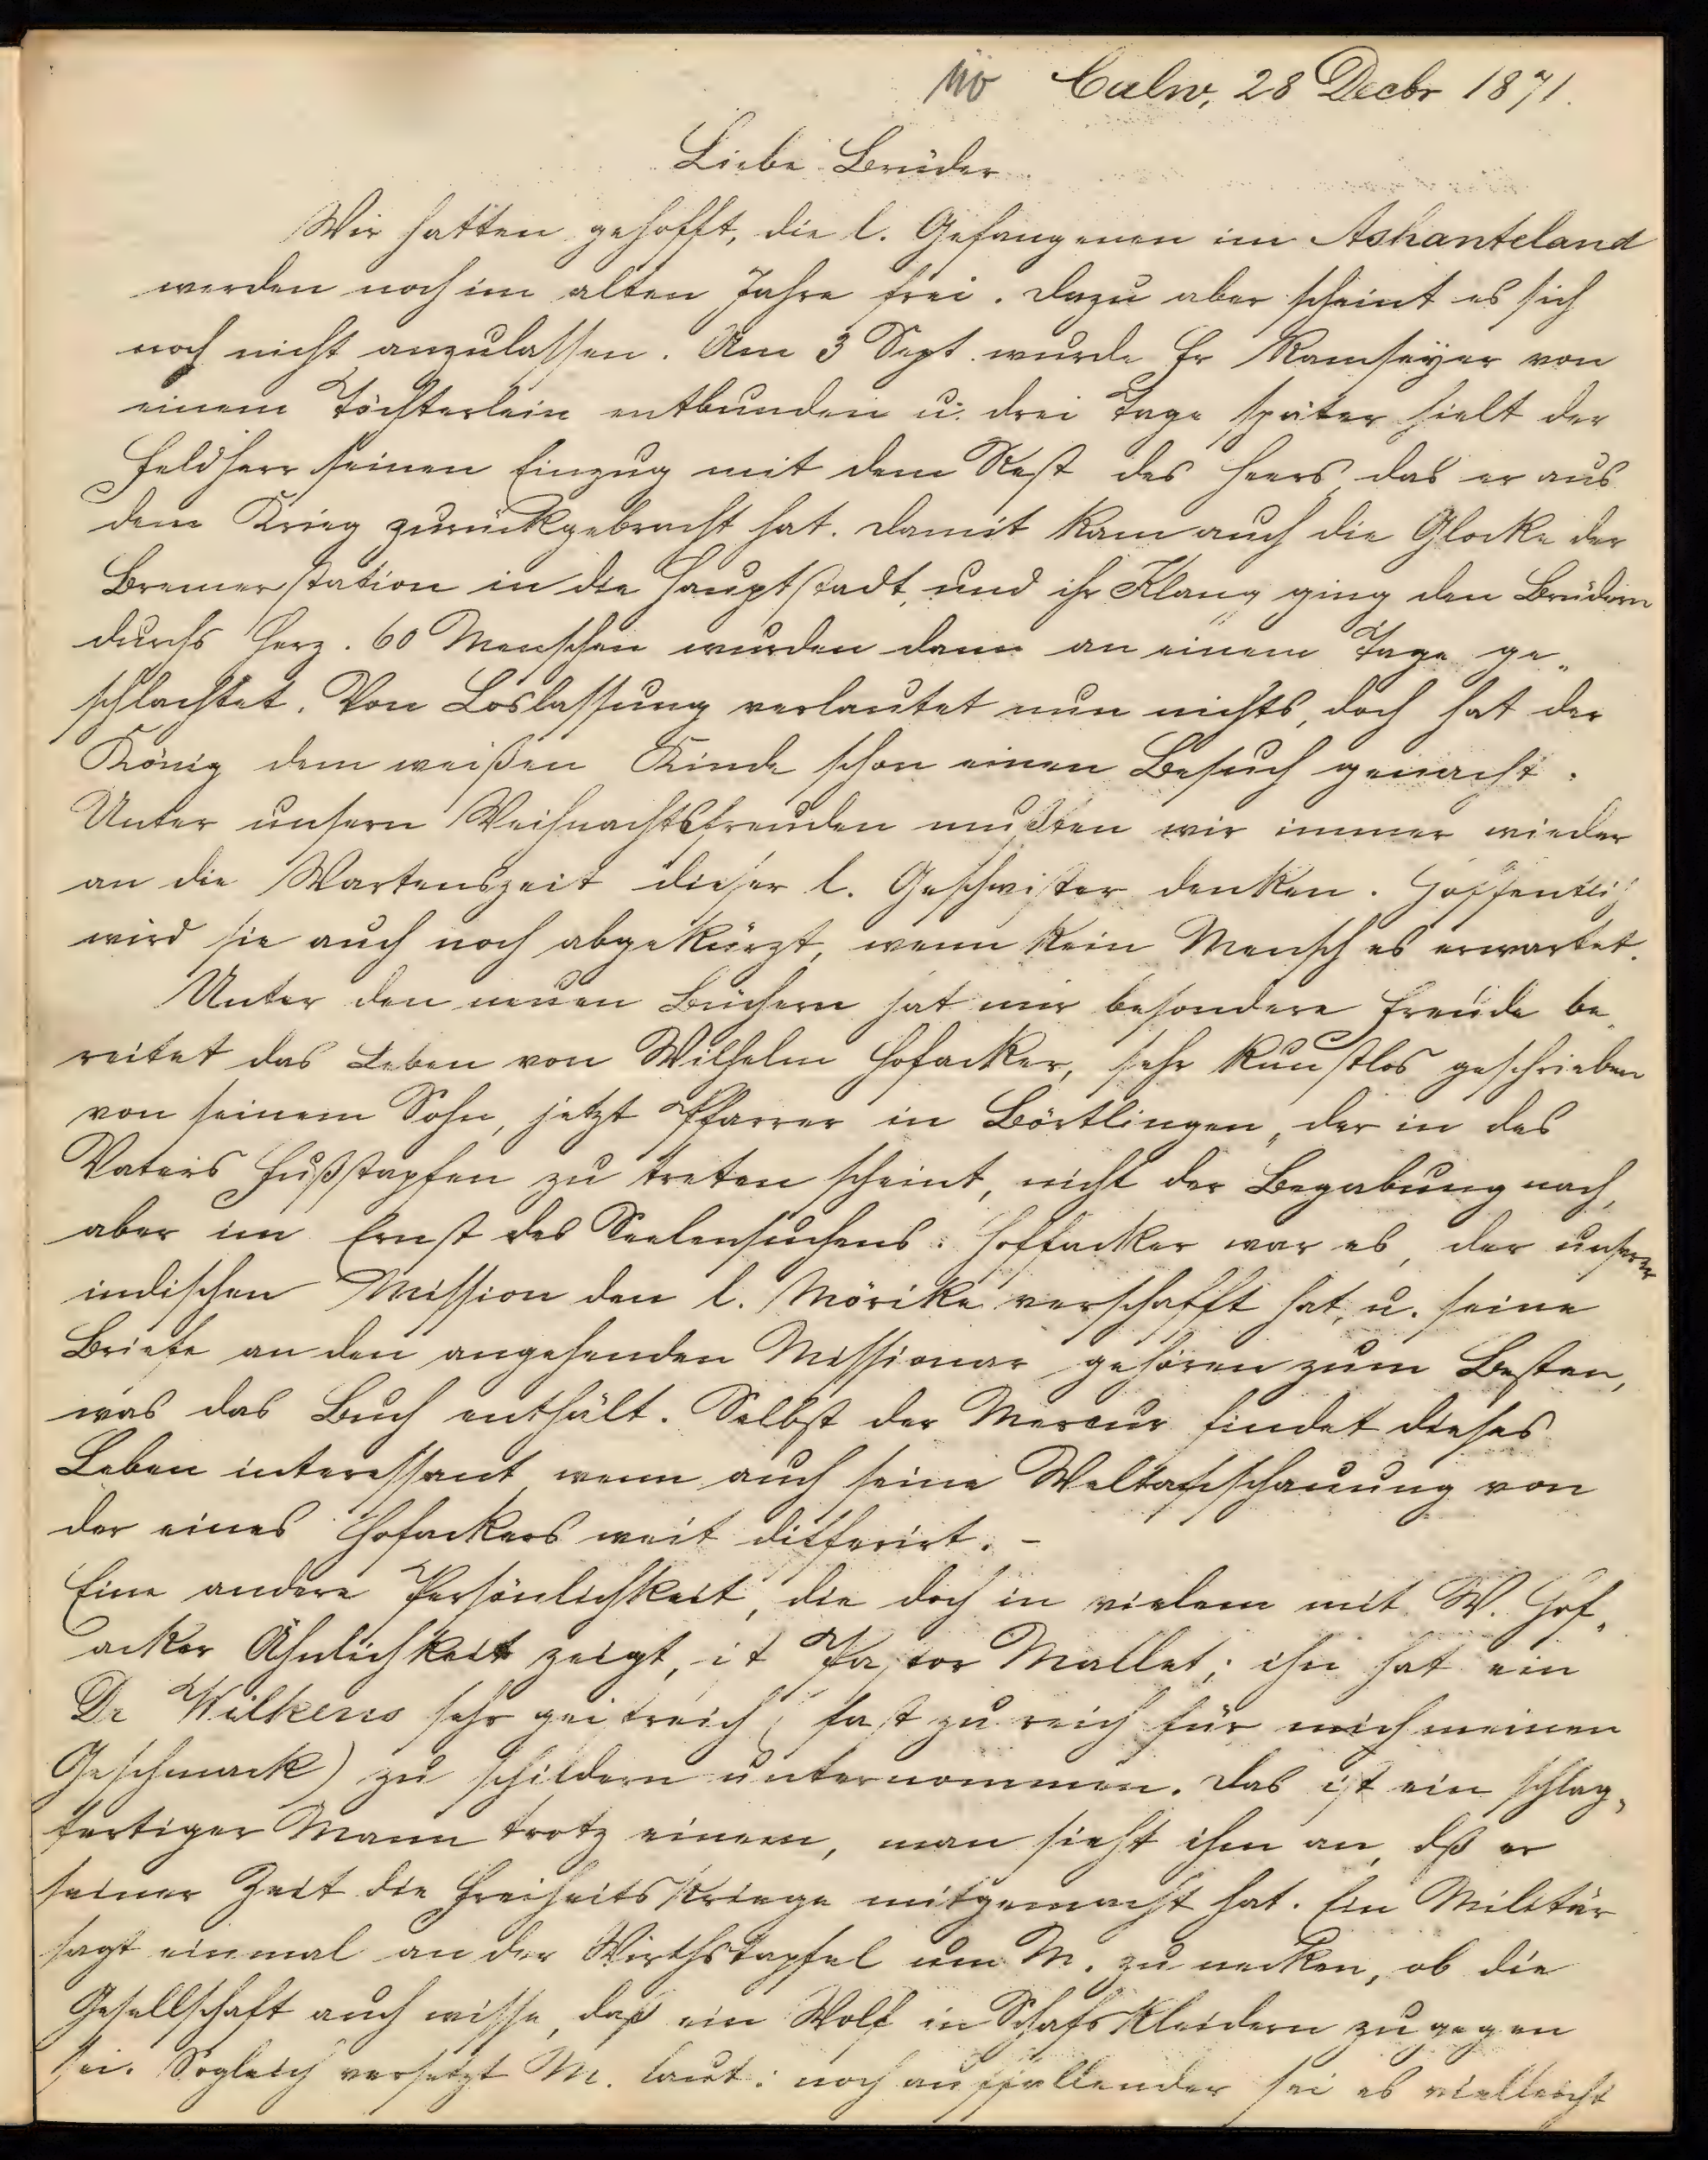 110 Calw, 28 Decbr 1871.
Liebe Brüder
Wir hatten gehofft, die l. Gefangenen im Ashanteland
werden noch im alten Jahre frei. Dazu aber scheint es sich
noch nicht anzulassen. Am 3 Sept. wurde Fr Ramseyer von
einem Töchterlein entbunden u. drei Tage später hielt der
Feldherr seinen Einzug mit dem Rest des Heers das er aus
dem Krieg zurückgebracht hat. Damit kam auch die Glocke der
Bremerstation in die Hauptstadt, und ihr Klang ging den Brüdern
durchs Herz. 60 Menschen wurden dann an einem Tage ge-
schlachtet. Von Loslassung verlautet nun nichts, doch hat der
König dem weißen Kinde schon einen Besuch gemacht.
Unter unsern Weihnachtsfreuden mußten wir immer wieder
an die Wartenszeit dieser l. Geschwister denken. Hoffentlich
wird sie auch noch abgekürzt, wenn kein Mensch es erwartet.
Unter den neuen Büchern hat mir besondere Freude be-
reitet das Leben von Wilhelm Hofacker, sehr kunstlos geschrieben
von seinem Sohn, jetzt Pfarrer in Börtlingen, der in des
Vaters Fußstapfen zu treten scheint, nicht der Begabung nach,
aber im Ernst des Seelensuchens. Hoffacker war es, der unserer
indischen Mission den l. Mörike verschafft hat, u. seine
Briefe an den angehenden Missionar gehören zum Besten,
was das Buch enthält. Selbst der Mercur findet dieses
Leben interessant wenn auch seine Weltanschauung von
der eines Hofackers weit differirt. -
Eine andere Persönlichkeit, die doch in vielem mit W. Hof-
acker Ähnlichkeit zeigt, ist Pastor Mallet; ihn hat ein
Dr Wilkens sehr geistreich (fast zu reich für mich meinen
Geschmack) zu schildern unternommen. Das ist ein schlag-
fertiger Mann trotz einem, man sieht ihm an, dß er
seiner Zeit die Freiheitskriege mitgemacht hat. Ein Militär
sagt einmal an der Wirthstapfel um M. zu necken, ob die
Gesellschaft auch wisse, daß ein Wolf in Schafskleidern zugegen
sei. Sogleich versetzt M. laut: noch auffallender sei es vielleicht